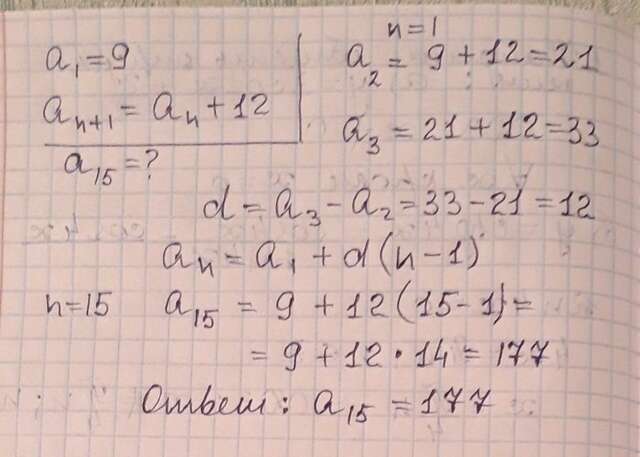 a₁ = 9
aₙ₊₁ = aₙ + 12
a₁₅ = ?
n = 1
a₂ = 9 + 12 = 21
a₃ = 21 + 12 = 33
d = a₃ - a₂ = 33 - 21 = 12
aₙ = a₁ + d(n - 1)
n = 15 a₁₅ = 9 + 12(15 - 1) =
= 9 + 12 · 14 = 177
Ответ: a₁₅ = 177